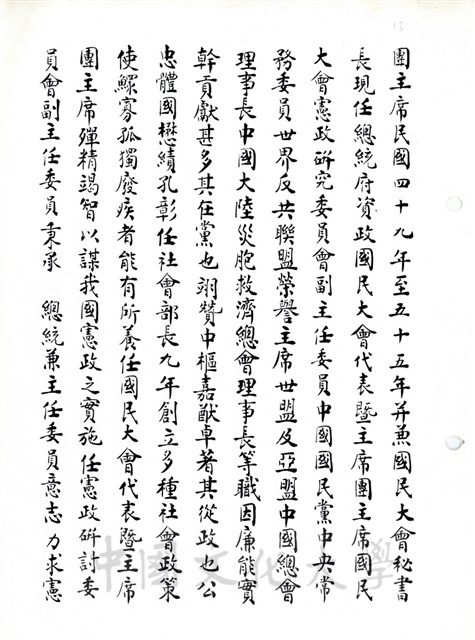 團主席民國四十九年至五十五年并兼國民大會秘書
長現任總統府資政國民大會代表暨主席團主席國民
大會憲政研究委員會副主任委員中國國民黨中央常
務委員世界反共聯盟榮譽主席世盟及亞盟中國總會
理事長中國大陸災胞救濟總會理事長等職因廉能實
幹貢獻甚多其在黨也翊贊中樞嘉猷卓著其從政也公
忠體國懋績孔彰任社會部長九年創立多種社會政策
使鰥寡孤獨廢疾者能有所養任國民大會代表暨主席
團主席殫精竭智以謀我國憲政之實施任憲政研討委
員會副主任委員秉承　總統兼主任委員意志力求憲
13
中國文化大學